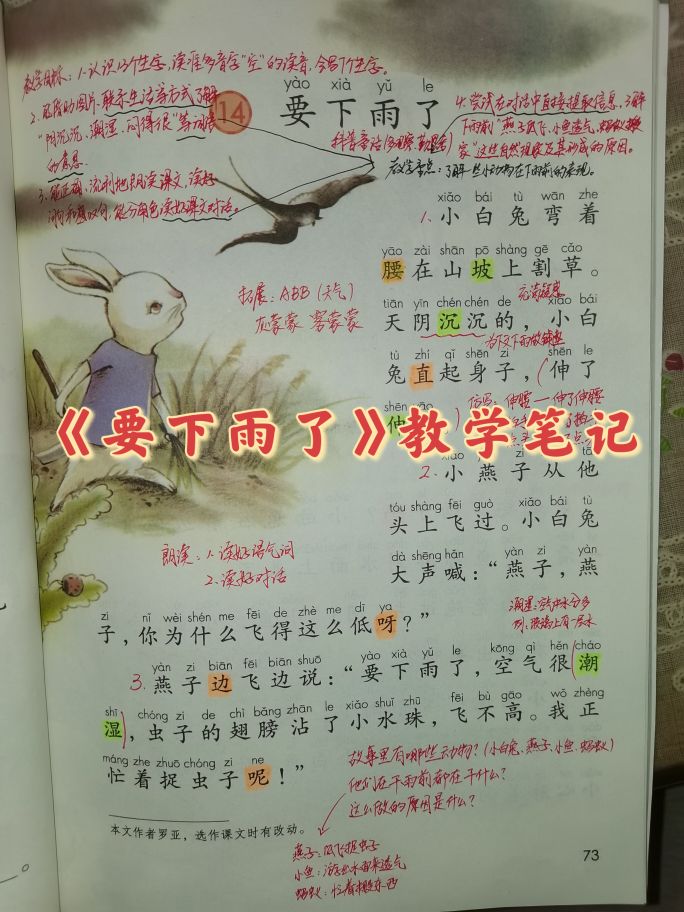 教学目标：1.认识13个生字，读准多音字"空"的读音，会写7个生字。
2.能借助图片、联系生活等方式了解
"阴沉沉、潮湿、闷得很"等词语
的意思
3.能正确、流利地朗读课文，读好
能分角色读好课文对话。
4.尝试在对话中直接提取信息，了解
下雨前"燕子低飞、小鱼透气、蚂蚁搬
家"这些自然现象及其形成的原因。
教学重点：了解一些小动物在下雨前的表现。
科普童话
yào xià yǔ le
14 要下雨了
xiǎo bái tù wān zhe
1.小白兔弯着
yāo zài shān pō shàng gē cǎo
腰在山坡上割草。
拓展：ABB（天气）
灰蒙蒙 雾蒙蒙
tiān yīn chén chén de xiǎo bái
天阴沉沉的，小白
为下文下雨做铺垫
tù zhí qǐ shēn zi shēn le
兔直起身子，伸了
shēn yāo
伸
仿写：伸腰——伸了伸腰
《要下雨了》教学笔记
2.小燕子从他
tóu shàng fēi guò xiǎo bái tù
头上飞过。小白兔
朗读：1.读好语气词
2.读好对话
dà shēng hǎn yàn zi yàn
大声喊："燕子，燕
zi nǐ wèi shén me fēi de zhè me dī ya
子，你为什么飞得这么低呀？"
潮湿：空气中水分多
yàn zi biān fēi biān shuō yào xià yǔ le kōng qì hěn cháo
3.燕子边飞边说："要下雨了，空气很潮
shī chóng zi de chì bǎng zhān le xiǎo shuǐ zhū fēi bù gāo wǒ zhèng
湿，虫子的翅膀沾了小水珠，飞不高。我正
máng zhe zhuō chóng zi ne
忙着捉虫子呢！"
故事里有哪些动物？（小白兔、燕子、小鱼、蚂蚁）
他们在下雨前都在干什么？
这么做的原因是什么？
本文作者罗亚，选作课文时有改动。
燕子：低飞捉虫子
小鱼：游出水面来透气
蚂蚁：忙着搬东西
73